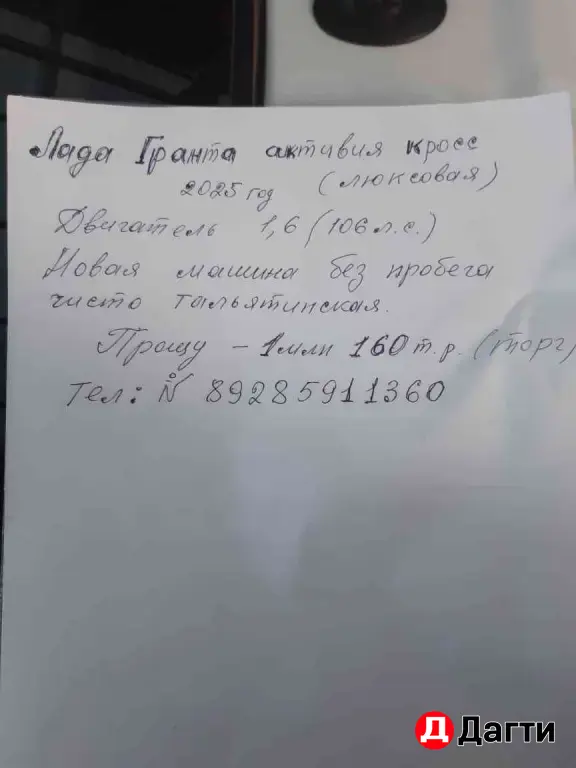 Лада Гранта активия кросс
2025 год (люксовая)
Двигатель 1,6 (106 л.с.)
Новая машина без пробега
чисто тальятинская.
Прошу - 1 млн 160 т.р. (торг)
Тел: № 89285911360
Д Дагти